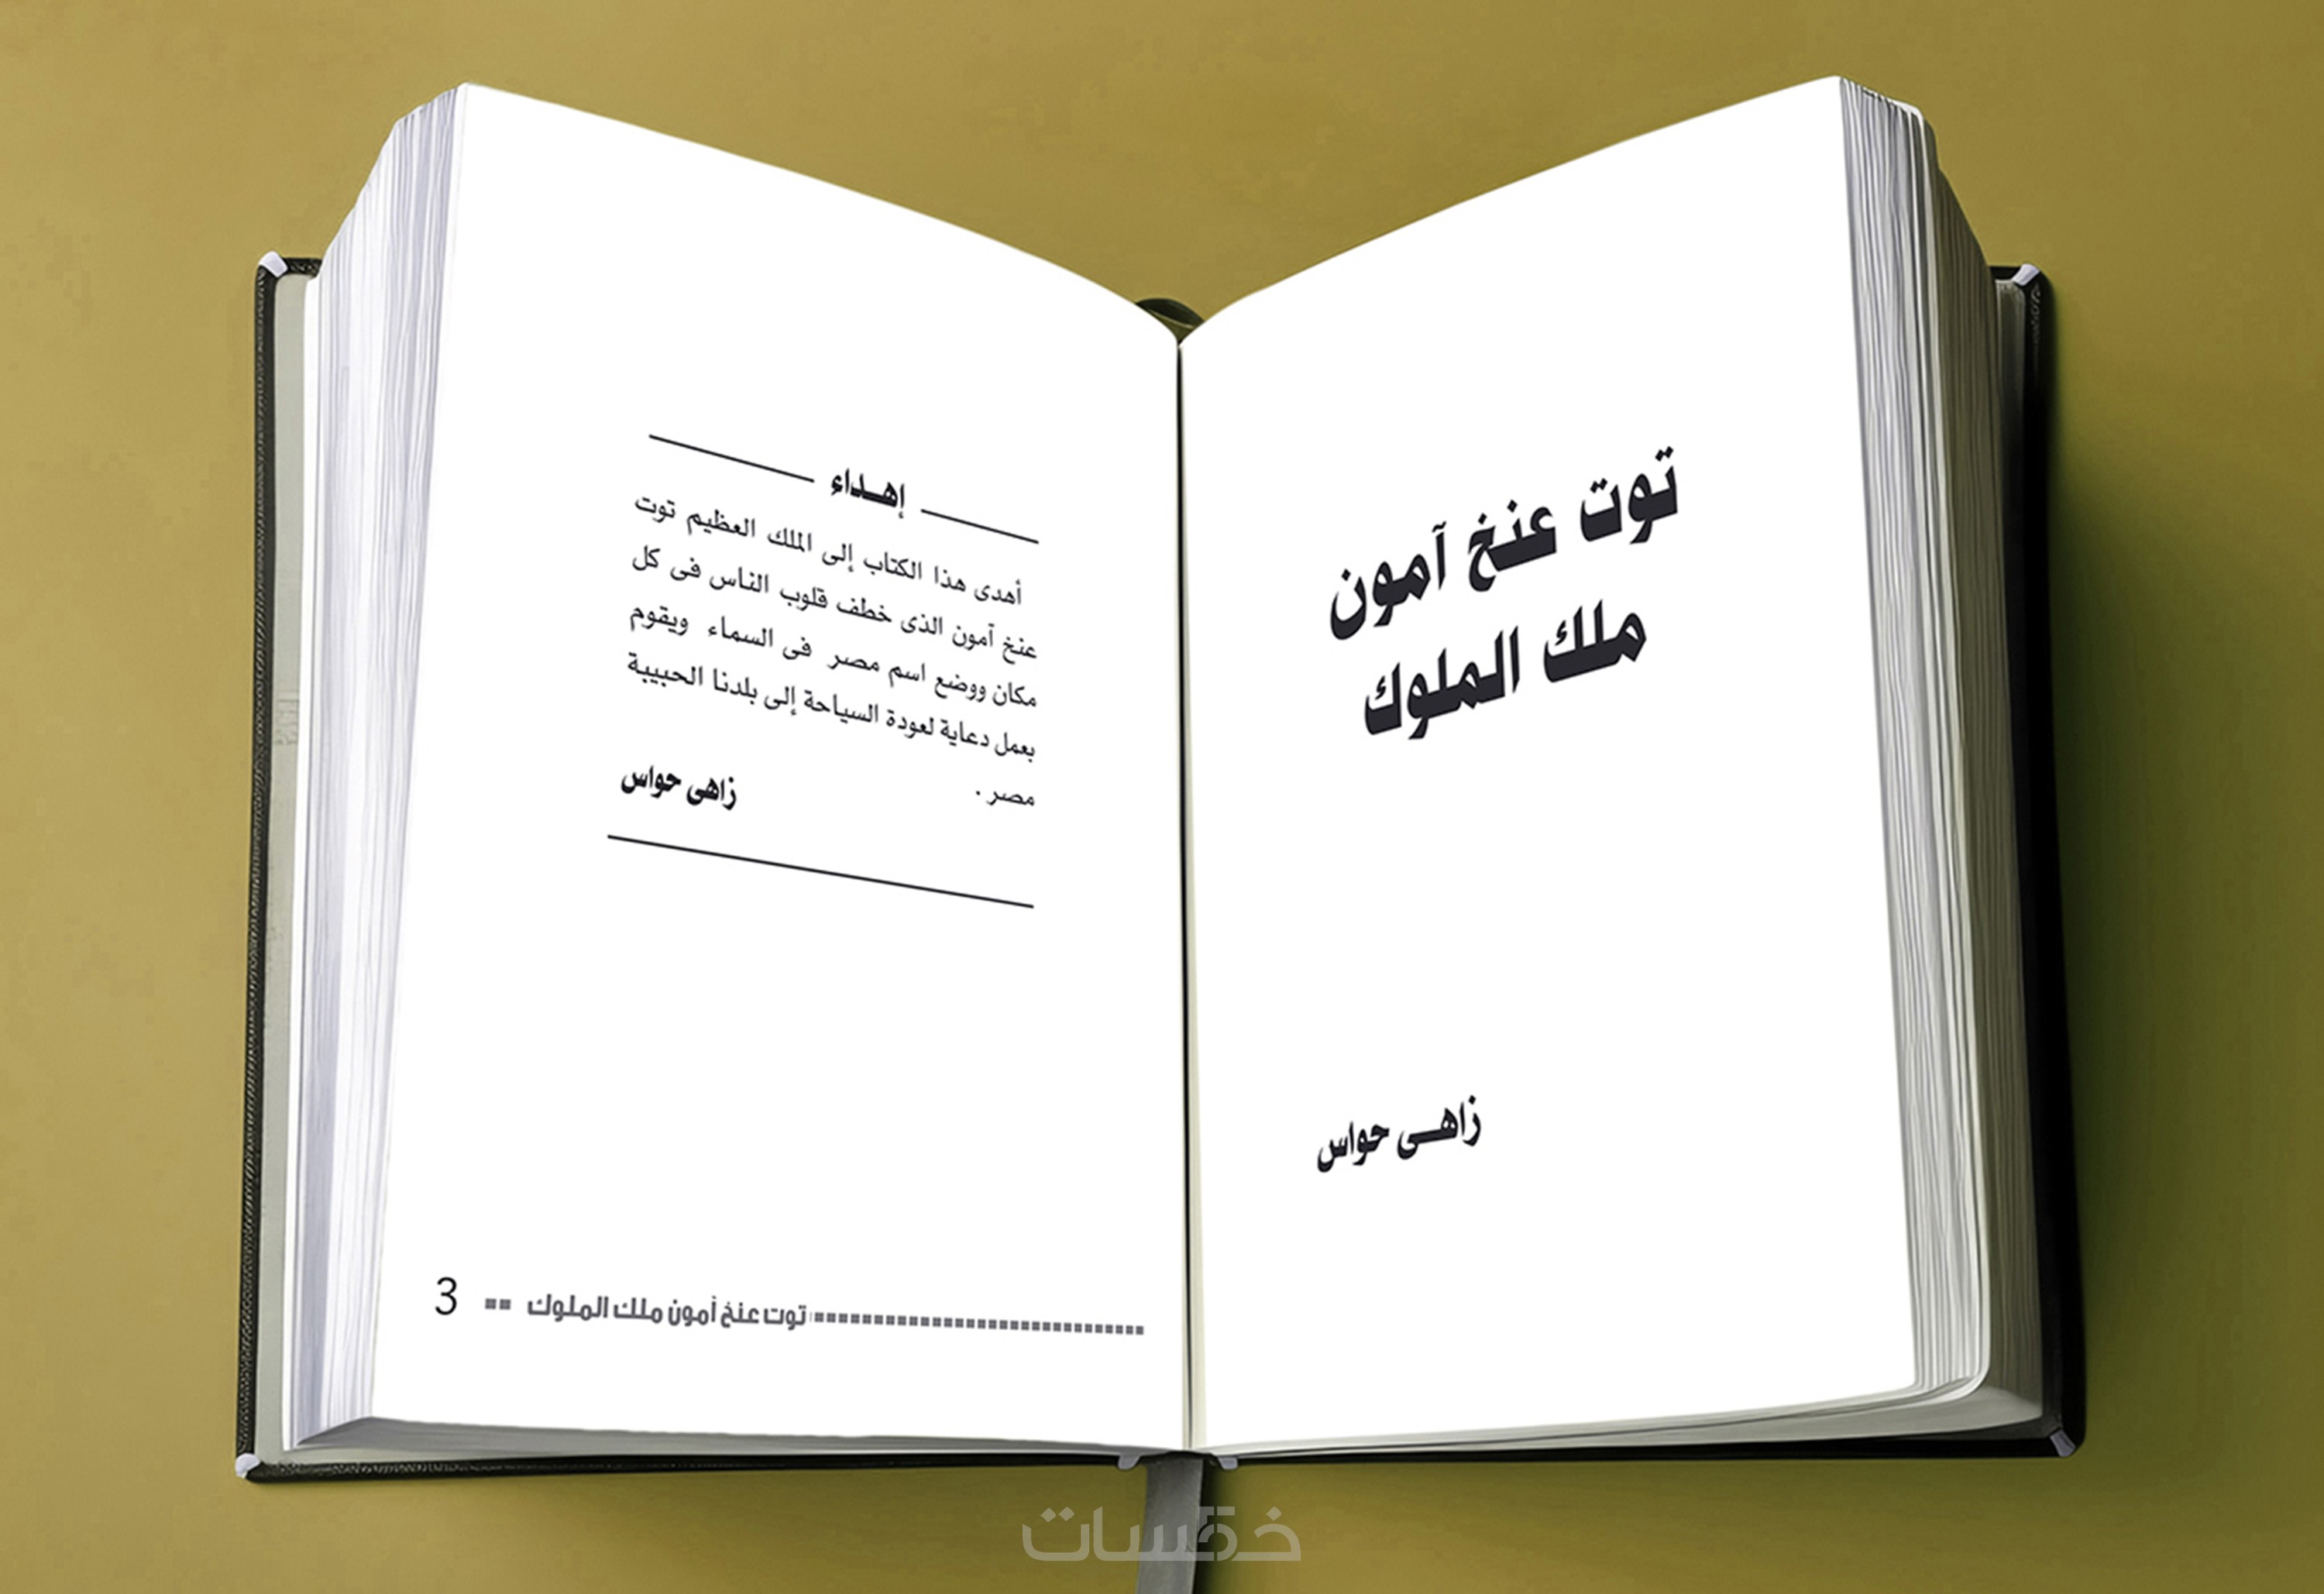 توت عنخ آمون
ملك الملوك
زاهــى حواس
إهــداء
أهدى هذا الكتاب إلى الملك العظيم توت
عنخ آمون الذى خطف قلوب الناس فى كل
مكان ووضع اسم مصر فى السماء ويقوم
بعمل دعاية لعودة السياحة إلى بلدنا الحبيبة
مصر .
زاهى حواس
توت عنخ آمون ملك الملوك 3
خمسات